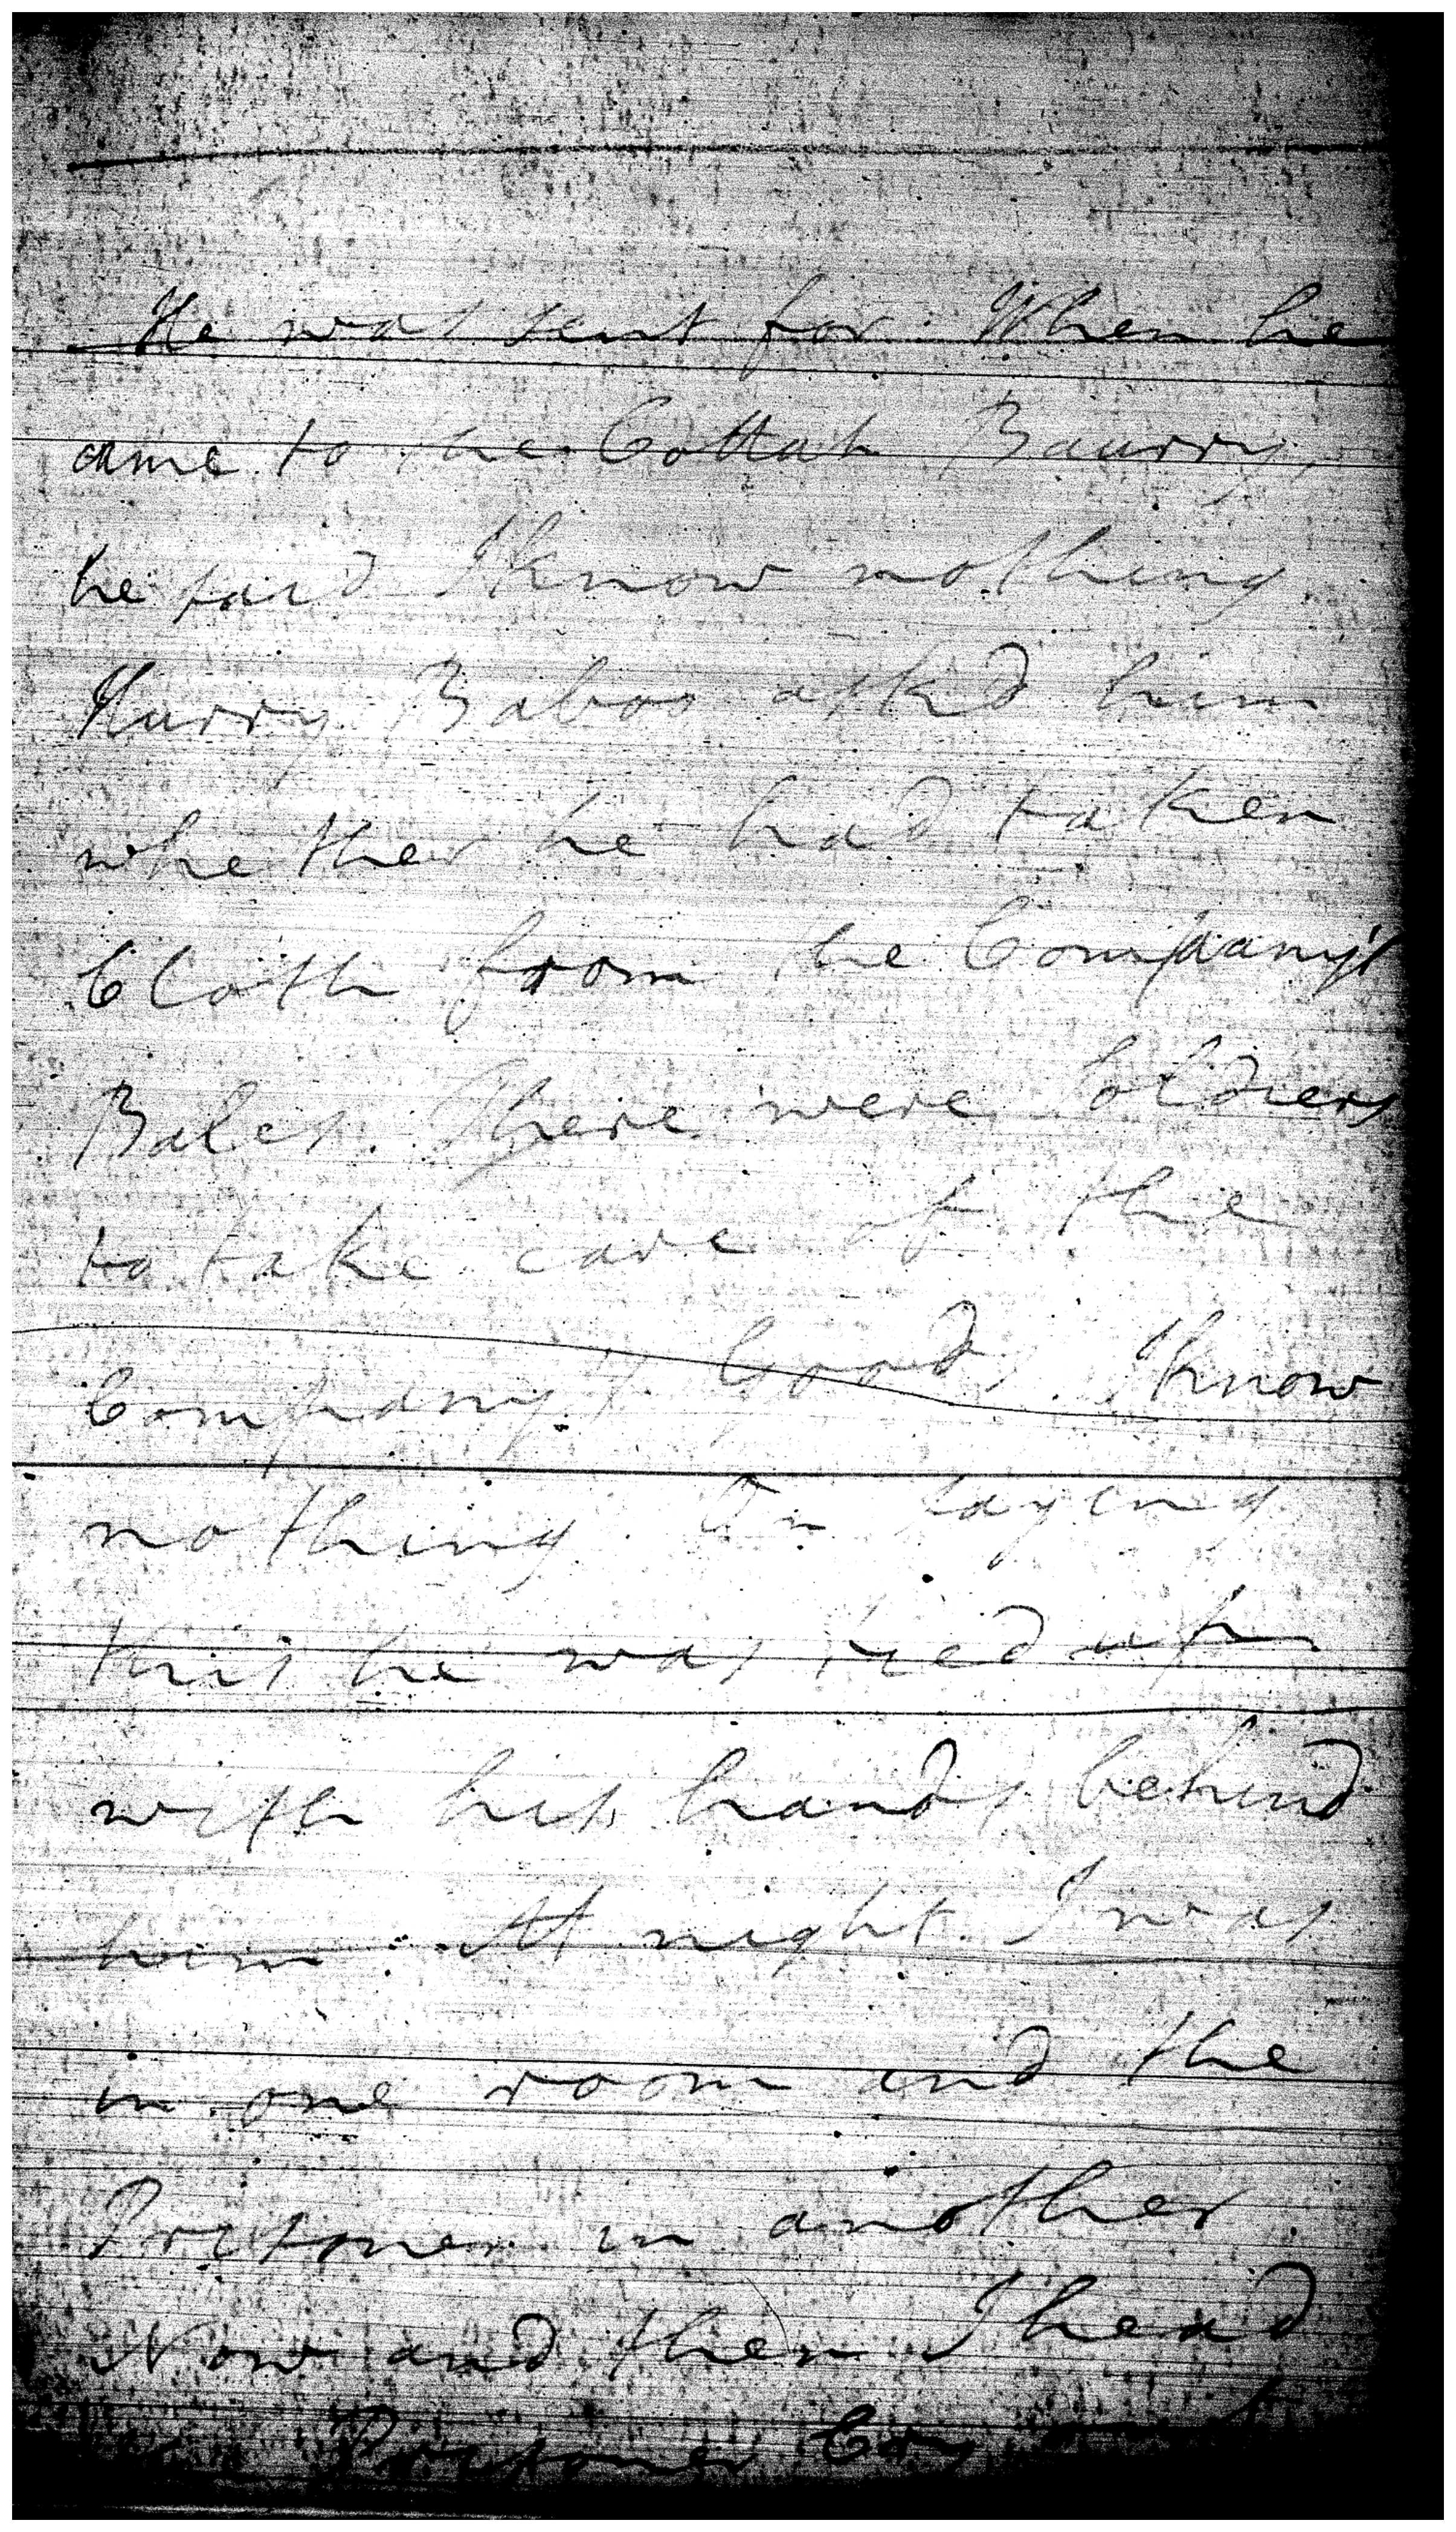 He was sent for. When he
came to the Cottah Baurry,
he said I know nothing
Hurry Baboo ask'd him
whether he had taken
Cloth from the Company's
Bales. There were Soldiers
to take care of the
Company's Goods. I know
nothing. On saying
this he was tied up
with his hands behind
him. At night I was
in one room and the
Prisoner in another
Now and then I head
Prisoner Cry out